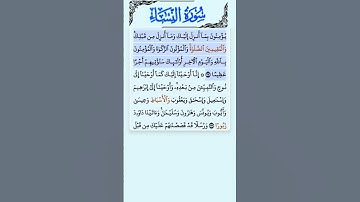 سُورَةُ النِّسَاءِ
يُؤْمِنُونَ بِمَا أُنزِلَ إِلَيْكَ وَمَا أُنزِلَ مِن قَبْلِكَ
وَالْمُقِيمِينَ الصَّلَوٰةَ وَالْمُؤْتُونَ الزَّكَوٰةَ وَالْمُؤْمِنُونَ
بِاللَّهِ وَالْيَوْمِ الْآخِرِ أُولَٰئِكَ سَنُؤْتِيهِمْ أَجْرًا
عَظِيمًا ۝ إِنَّا أَوْحَيْنَا إِلَيْكَ كَمَا أَوْحَيْنَا إِلَىٰ
نُوحٍ وَالنَّبِيِّينَ مِن بَعْدِهِ وَأَوْحَيْنَا إِلَىٰ إِبْرَاهِيمَ
وَإِسْمَاعِيلَ وَإِسْحَاقَ وَيَعْقُوبَ وَالْأَسْبَاطِ وَعِيسَىٰ
وَأَيُّوبَ وَيُونُسَ وَهَارُونَ وَسُلَيْمَانَ وَآتَيْنَا دَاوُودَ
زَبُورًا ۝ وَرُسُلًا قَدْ قَصَصْنَاهُمْ عَلَيْكَ مِن قَبْلُ